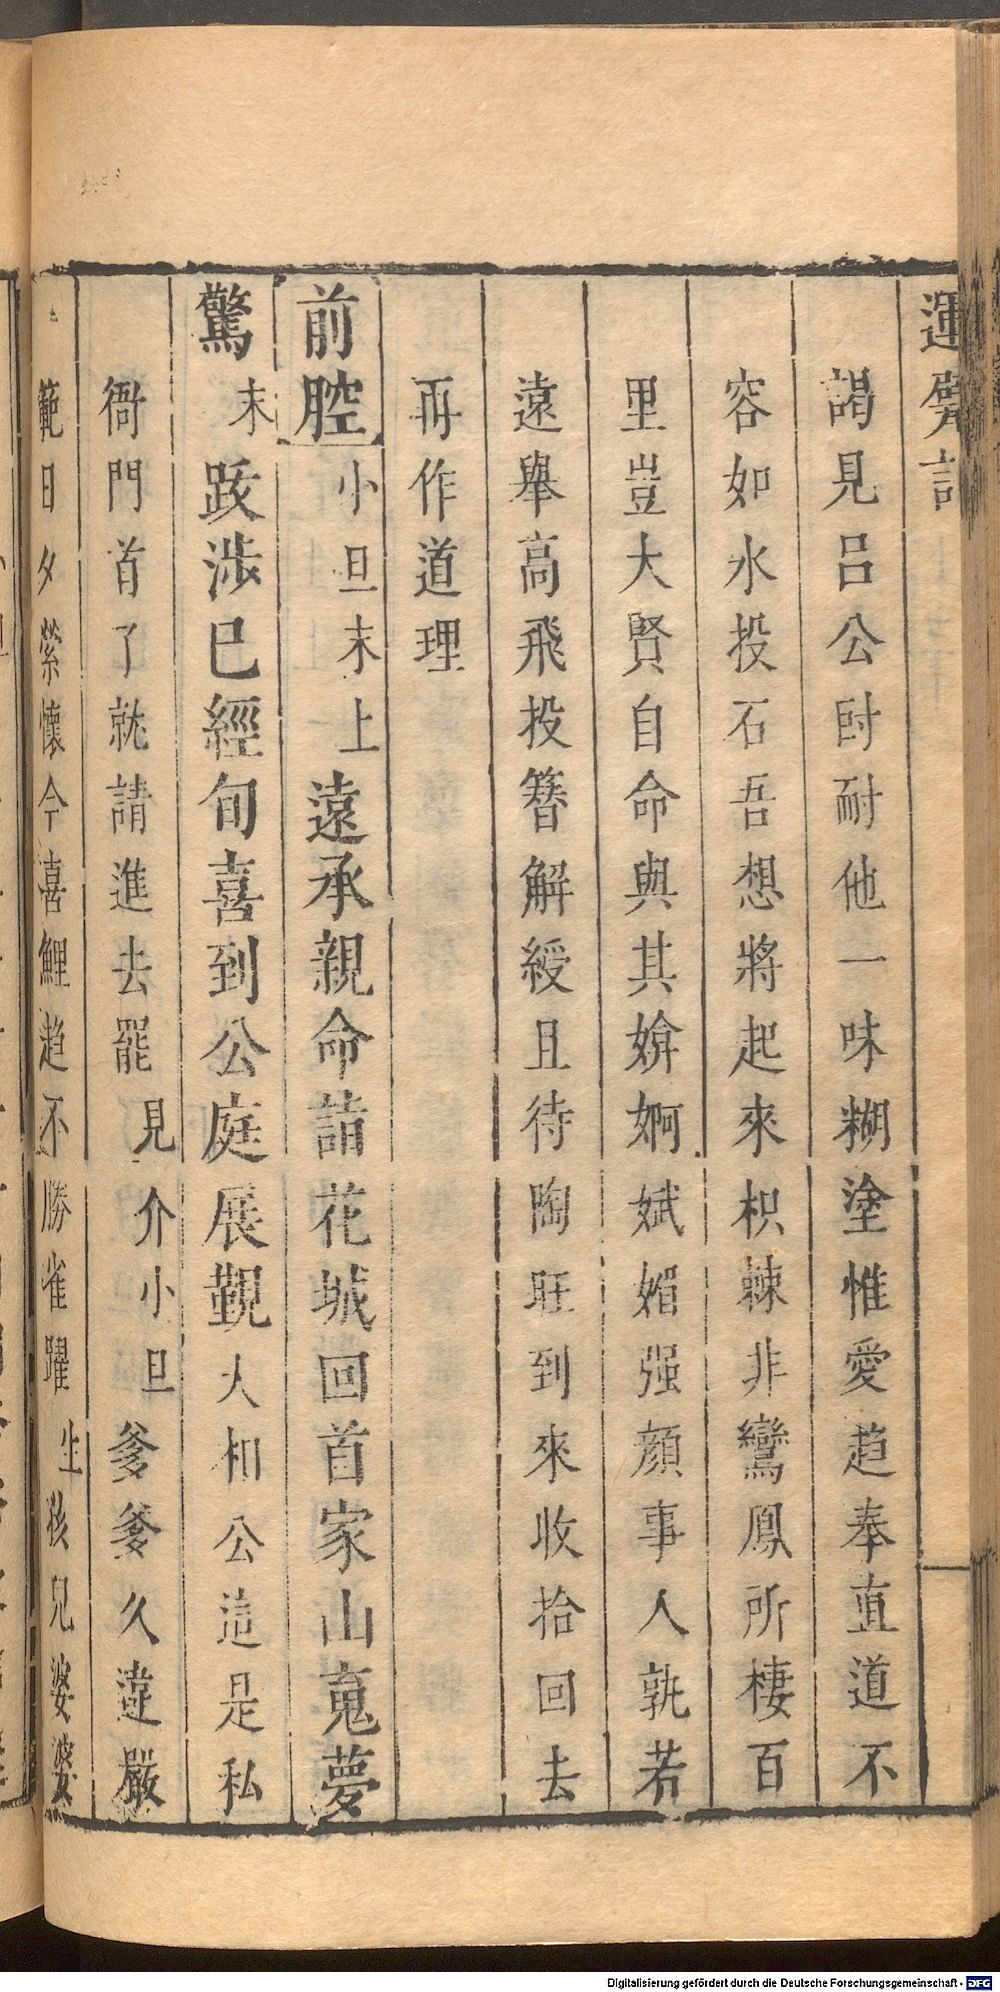 運甓記
謁見呂公時耐他一味糊塗惟愛趋奉直道不
容如水投石吾想將起來枳棘非鸞鳳所棲百
里豈大賢自命與其媕婀娬媚强顏事人孰若
遠舉高飛投簪解綬且待陶旺到來收拾回去
再作道理
前腔 小旦末上 遠承親命詣花城回首家山䰟夢
驚 末 跋涉已經旬喜到公庭展覲 大相公這是私
衙門首了就請進去罷 見介 小旦 爹爹久違嚴
範日夕縈懷今喜鯉趋不勝雀躍 生 孩兒婆婆
Digitalisierung gefördert durch die Deutsche Forschungsgemeinschaft - DFG